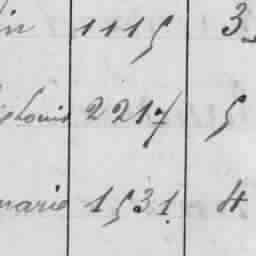 in 1115 3
Louis 2217 5
marie 1531. 4